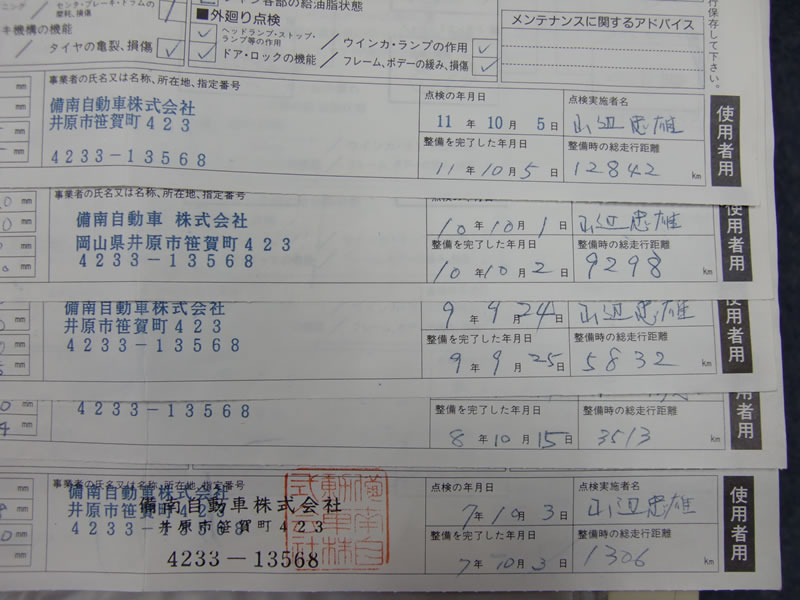 ーニング
センタ・ブレーキ・ドラムの
摩耗、損傷
キ機構の機能
タイヤの亀裂、損傷
■外廻り点検
ヘッドランプ・ストップ・
ランプ等の作用
ウインカ・ランプの作用
ドア・ロックの機能
フレーム、ボデーの緩み、損傷
エンジン各部の給油脂状態
メンテナンスに関するアドバイス
保存して下さい。
事業者の氏名又は名称、所在地、指定番号
備南自動車株式会社
井原市笹賀町423
4233-13568
点検の年月日
11年10月5日
点検実施者名
山辺忠雄
整備を完了した年月日
11年10月5日
整備時の総走行距離
12842 km
使用者用
事業者の氏名又は名称、所在地、指定番号
備南自動車 株式会社
岡山県井原市笹賀町423
4233-13568
点検の年月日
10年10月1日
山辺忠雄
整備を完了した年月日
10年10月2日
整備時の総走行距離
9298 km
使用者用
備南自動車株式会社
井原市笹賀町423
4233-13568
9年9月24日
山辺忠雄
整備を完了した年月日
9年9月25日
整備時の総走行距離
5832 km
使用者用
4233-13568
整備を完了した年月日
8年10月15日
整備時の総走行距離
3513 km
用者用
事業者の氏名又は名称、所在地、指定番号
備南自動車株式会社
井原市笹賀町423
4233-13568
備南自動車株式会社
井原市笹賀町423
4233-13568
備南自動車株式会社
点検の年月日
7年10月3日
点検実施者名
山辺忠雄
整備を完了した年月日
7年10月3日
整備時の総走行距離
1306 km
使用者用